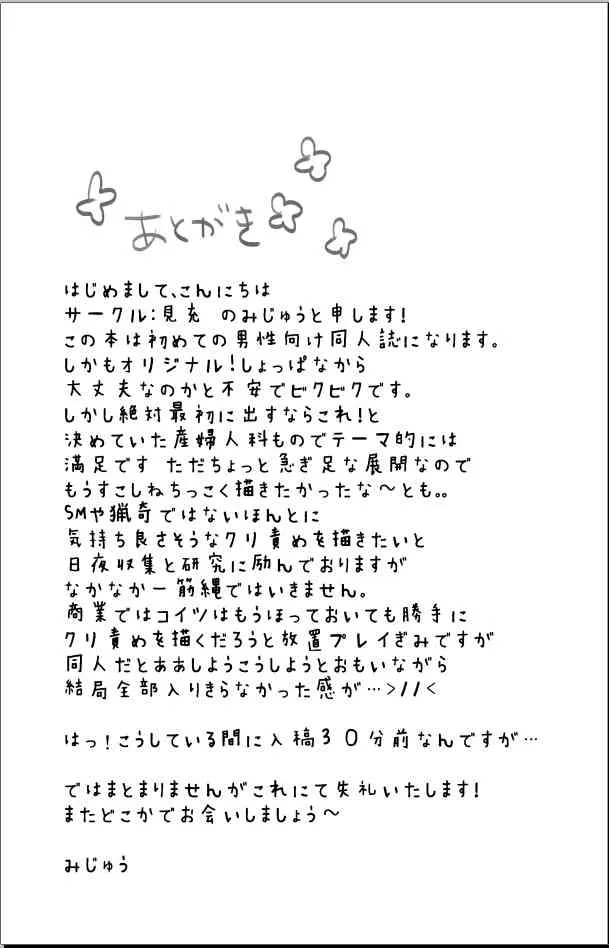 あとがき
はじめまして、こんにちは
サークル:見充 のみじゅうと申します!
この本は初めての男性向け同人誌になります。
しかもオリジナル!しょっぱなから
大丈夫なのかと不安でビクビクです。
しかし絶対最初に出すならこれ!と
決めていた産婦人科ものでテーマ的には
満足です ただちょっと急ぎ足な展開なので
もうすこしねちっこく描きたかったな～とも。。
SMや猟奇ではないほんとに
気持ち良さそうなクリ責めを描きたいと
日夜収集と研究に励んでおりますが
なかなか一筋縄ではいきません。
商業ではコイツはもうほっておいても勝手に
クリ責めを描くだろうと放置プレイぎみですが
同人だとああしようこうしようとおもいながら
結局全部入りきらなかった感が…>//<
はっ!こうしている間に入稿30分前なんですが…
ではまとまりませんがこれにて失礼いたします!
またどこかでお会いしましょう～
みじゅう